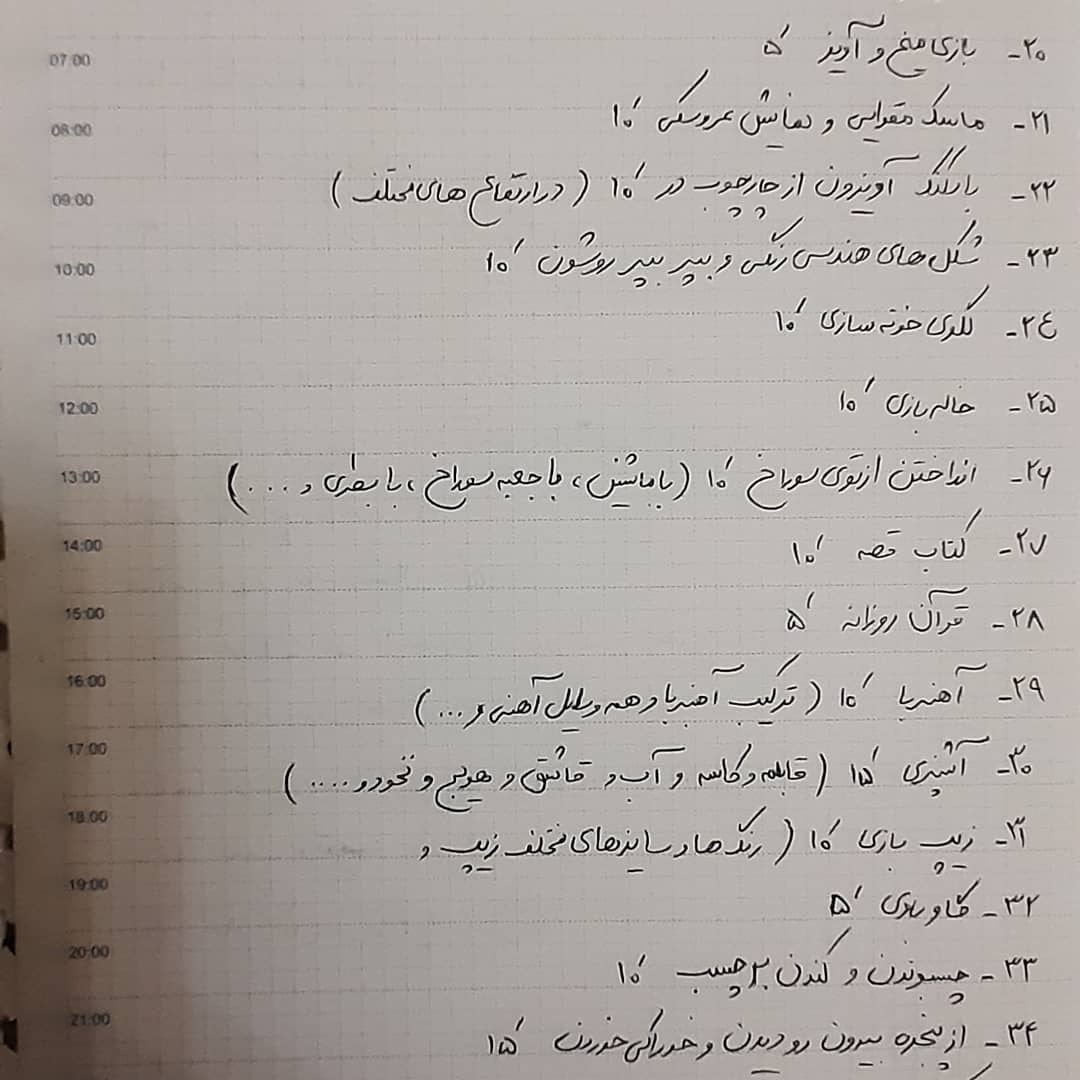 07:00
08:00
09:00
10:00
11:00
12:00
13:00
14:00
15:00
16:00
17:00
18:00
19:00
20:00
21:00
۲۰- بازی میخ و آویز ۵′
۲۱- ماسک مقوایی و نمایش عروسکی ۱۰′
۲۲- بادکنک آویزون از چارچوب در ۱۰′ (در ارتفاع های مختلف)
۲۳- شکل های هندسی رنگی و بپر بپر روشون ۱۰′
۲۴- خونه سازی ۱۰′
۲۵- خاله بازی ۱۰′
۲۶- انداختن از توی سوراخ ۱۰′ (با ماشین، با جعبه سوراخ، با بطری و ...)
۲۷- کتاب قصه ۱۰′
۲۸- قرآن روزانه ۵′
۲۹- آهنربا ۱۰′ (ترکیب آهنربا و همه وسایل آهنی و ...)
۳۰- آشپزی ۱۵′ (قابلمه و کاسه و آب و قاشق و هویج و نخود و ....)
۳۱- زیپ بازی ۱۰′ (رنگ ها و سایزهای مختلف زیپ و
۳۲- گاو بازی ۵′
۳۳- چسبوندن و کندن برچسب ۱۰′
۳۴- از پنجره بیرون رو دیدن و خوراکی خوردن ۱۵′